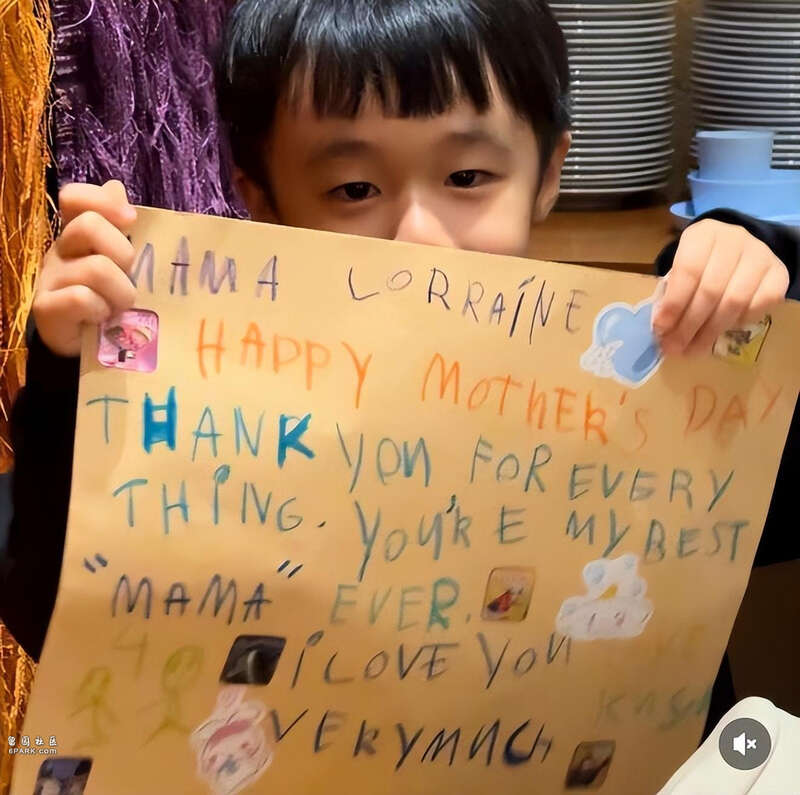 MAMA LORRAINE
HAPPY MOTHER'S DAY
THANK YOU FOR EVERY
THING. YOU'RE MY BEST
"MAMA" EVER.
I LOVE YOU
VERY MUCH
曾园社区
6PARK.com